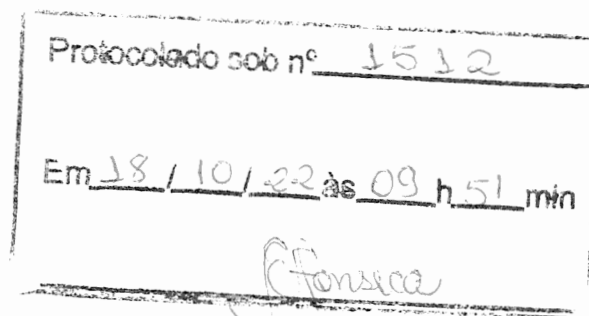 Protocolado sob nº 1512
Em 18 / 10 / 22 às 09 h 51 min
CFonseca